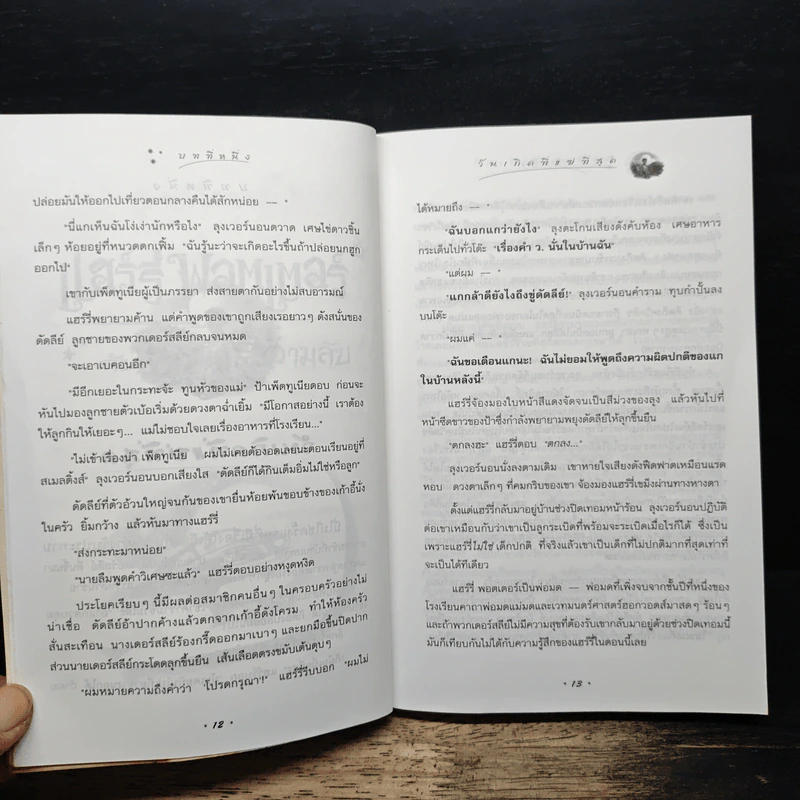 บทที่หนึ่ง
ปล่อยมันให้ออกไปเที่ยวตอนกลางคืนได้สักหน่อย -- "
"นี่แกเห็นฉันโง่เง่านักหรือไง" ลุงเวอร์นอนตวาด เศษไข่ดาวชิ้น
เล็กๆ ห้อยอยู่ที่หนวดดกเฟิ้ม "ฉันรู้นะว่าจะเกิดอะไรขึ้นถ้าปล่อยนกฮูก
ออกไป"
เขากับเพ็ตทูเนียผู้เป็นภรรยา ส่งสายตากันอย่างไม่สบอารมณ์
แฮร์รี่พยายามค้าน แต่คำพูดของเขาถูกเสียงเรอยาวๆ ดังสนั่นของ
ดัดลีย์ ลูกชายของพวกเดอร์สลีย์กลบจนหมด
"จะเอาเบคอนอีก"
"มีอีกเยอะในกระทะจ้ะ ทูนหัวของแม่" ป้าเพ็ตทูเนียตอบ ก่อนจะ
หันไปมองลูกชายตัวเบ้อเริ่มด้วยดวงตาฉ่ำเยิ้ม "มีโอกาสอย่างนี้ เราต้อง
ให้ลูกกินให้เยอะๆ... แม่ไม่ชอบใจเลยเรื่องอาหารที่โรงเรียน..."
"ไม่เข้าเรื่องน่า เพ็ตทูเนีย ผมไม่เคยต้องอดเลยนะตอนเรียนอยู่ที่
สเมลติ้งส์" ลุงเวอร์นอนบอกเสียงใส "ดัดลีย์ก็ได้กินเต็มอิ่มไม่ใช่หรือลูก"
ดัดลีย์ที่ตัวอ้วนใหญ่จนก้นของเขายื่นห้อยพ้นขอบข้างของเก้าอี้นั่ง
ในครัว ยิ้มกว้าง แล้วหันมาทางแฮร์รี่
"ส่งกระทะมาหน่อย"
"นายลืมพูดคำวิเศษซะแล้ว" แฮร์รี่ตอบอย่างหงุดหงิด
ประโยคเรียบๆ นี้มีผลต่อสมาชิกคนอื่นๆ ในครอบครัวอย่างไม่
น่าเชื่อ ดัดลีย์อ้าปากค้างแล้วตกจากเก้าอี้ดังโครม ทำให้ห้องครัว
สั่นสะเทือน นางเดอร์สลีย์ร้องกรี๊ดออกมาเบาๆ และยกมือขึ้นปิดปาก
ส่วนนายเดอร์สลีย์กระโดดลุกขึ้นยืน เส้นเลือดตรงขมับเต้นตุบๆ
"ผมหมายความถึงคำว่า 'โปรดกรุณา'!" แฮร์รี่รีบบอก "ผมไม่
12
วันเกิดที่แย่ที่สุด
ได้หมายถึง -- "
"ฉันบอกแกว่ายังไง" ลุงตะโกนเสียงดังคับห้อง เศษอาหาร
กระเด็นไปทั่วโต๊ะ "เรื่องคำ ว. นั่นในบ้านฉัน"
"แต่ผม -- "
"แกกล้าดียังไงถึงขู่ดัดลีย์!" ลุงเวอร์นอนคำราม ทุบกำปั้นลง
บนโต๊ะ
"ผมแค่ -- "
"ฉันขอเตือนแกนะ! ฉันไม่ยอมให้พูดถึงความผิดปกติของแก
ในบ้านหลังนี้"
แฮร์รี่จ้องมองใบหน้าสีแดงจัดจนเป็นสีม่วงของลุง แล้วหันไปที่
หน้าซีดขาวของป้าซึ่งกำลังพยายามพยุงดัดลีย์ให้ลุกขึ้นยืน
"ตกลงฮะ" แฮร์รี่ตอบ "ตกลง..."
ลุงเวอร์นอนนั่งลงตามเดิม เขาหายใจเสียงดังฟืดฟาดเหมือนแรด
หอบ ดวงตาเล็กๆ ที่คมกริบของเขา จ้องมองแฮร์รี่เขม็งผ่านทางหางตา
ตั้งแต่แฮร์รี่กลับมาอยู่บ้านช่วงปิดเทอมหน้าร้อน ลุงเวอร์นอนปฏิบัติ
ต่อเขาเหมือนกับว่าเขาเป็นลูกระเบิดที่พร้อมจะระเบิดเมื่อไรก็ได้ ซึ่งเป็น
เพราะแฮร์รี่ไม่ใช่ เด็กปกติ ที่จริงแล้วเขาเป็นเด็กที่ไม่ปกติมากที่สุดเท่าที่
จะเป็นได้ทีเดียว
แฮร์รี่ พอตเตอร์เป็นพ่อมด -- พ่อมดที่เพิ่งจบจากชั้นปีที่หนึ่งของ
โรงเรียนคาถาพ่อมดแม่มดและเวทมนตร์ศาสตร์ฮอกวอตส์มาสดๆ ร้อนๆ
และถ้าพวกเดอร์สลีย์ไม่มีความสุขที่ต้องรับเขากลับมาอยู่ด้วยช่วงปิดเทอมนี้
มันก็เทียบกันไม่ได้กับความรู้สึกของแฮร์รี่ในตอนนี้เลย
13